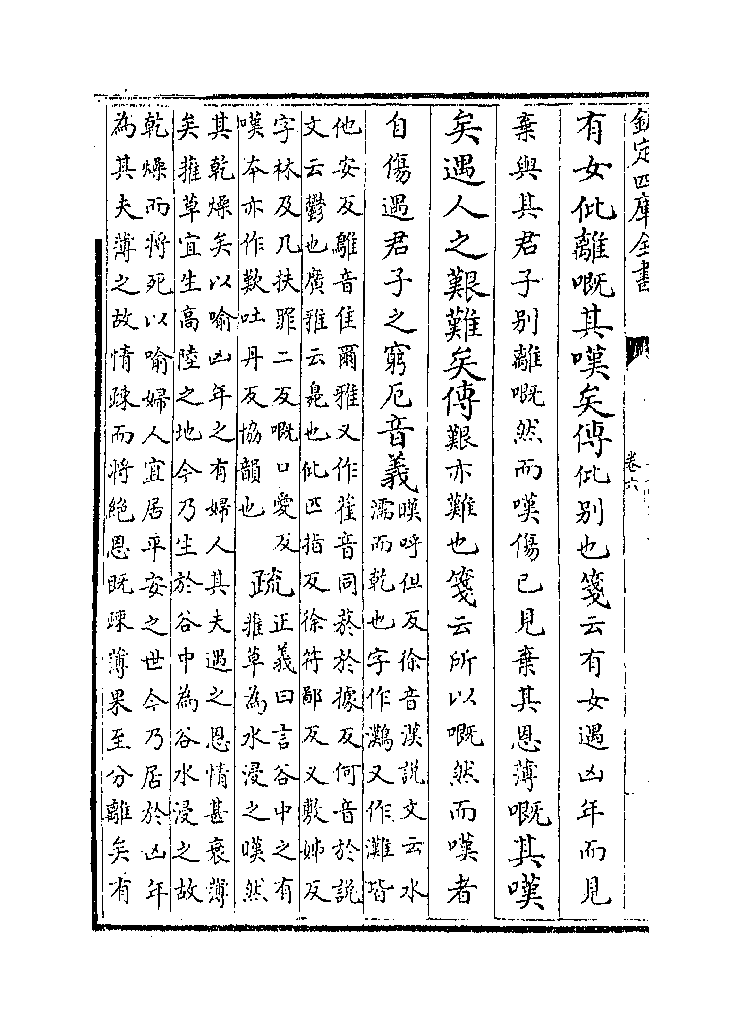 欽定四庫全書
卷六
有女仳離嘅其嘆矣傳仳别也箋云有女遇凶年而見
棄與其君子别離嘅然而嘆傷已見棄其恩薄嘅其嘆
矣遇人之艱難矣傳艱亦難也箋云所以嘅然而嘆者
自傷遇君子之窮厄音義
暵呼但反徐音漢説文云水
濡而乾也字作灘又作灘皆
他安反鵻音隹爾雅又作萑音同菸於據反何音於説
文云鬱也廣雅云㷇也仳匹指反徐符鄙反又敷姊反
字林反几扶罪二反嘅口愛反
嘆本亦作歎吐丹反協韻也
疏
正義曰言谷中之有
蓷草為水浸之暵然
其乾燥矣以喻凶年之有婦人其夫遇之恩情甚衰薄
矣蓷草宜生高陸之地今乃生於谷中為谷水浸之故
乾燥而將死以喻婦人宜居平安之世今乃居於凶年
為其夫薄之故情疎而將絶恩既疎薄果至分離矣有